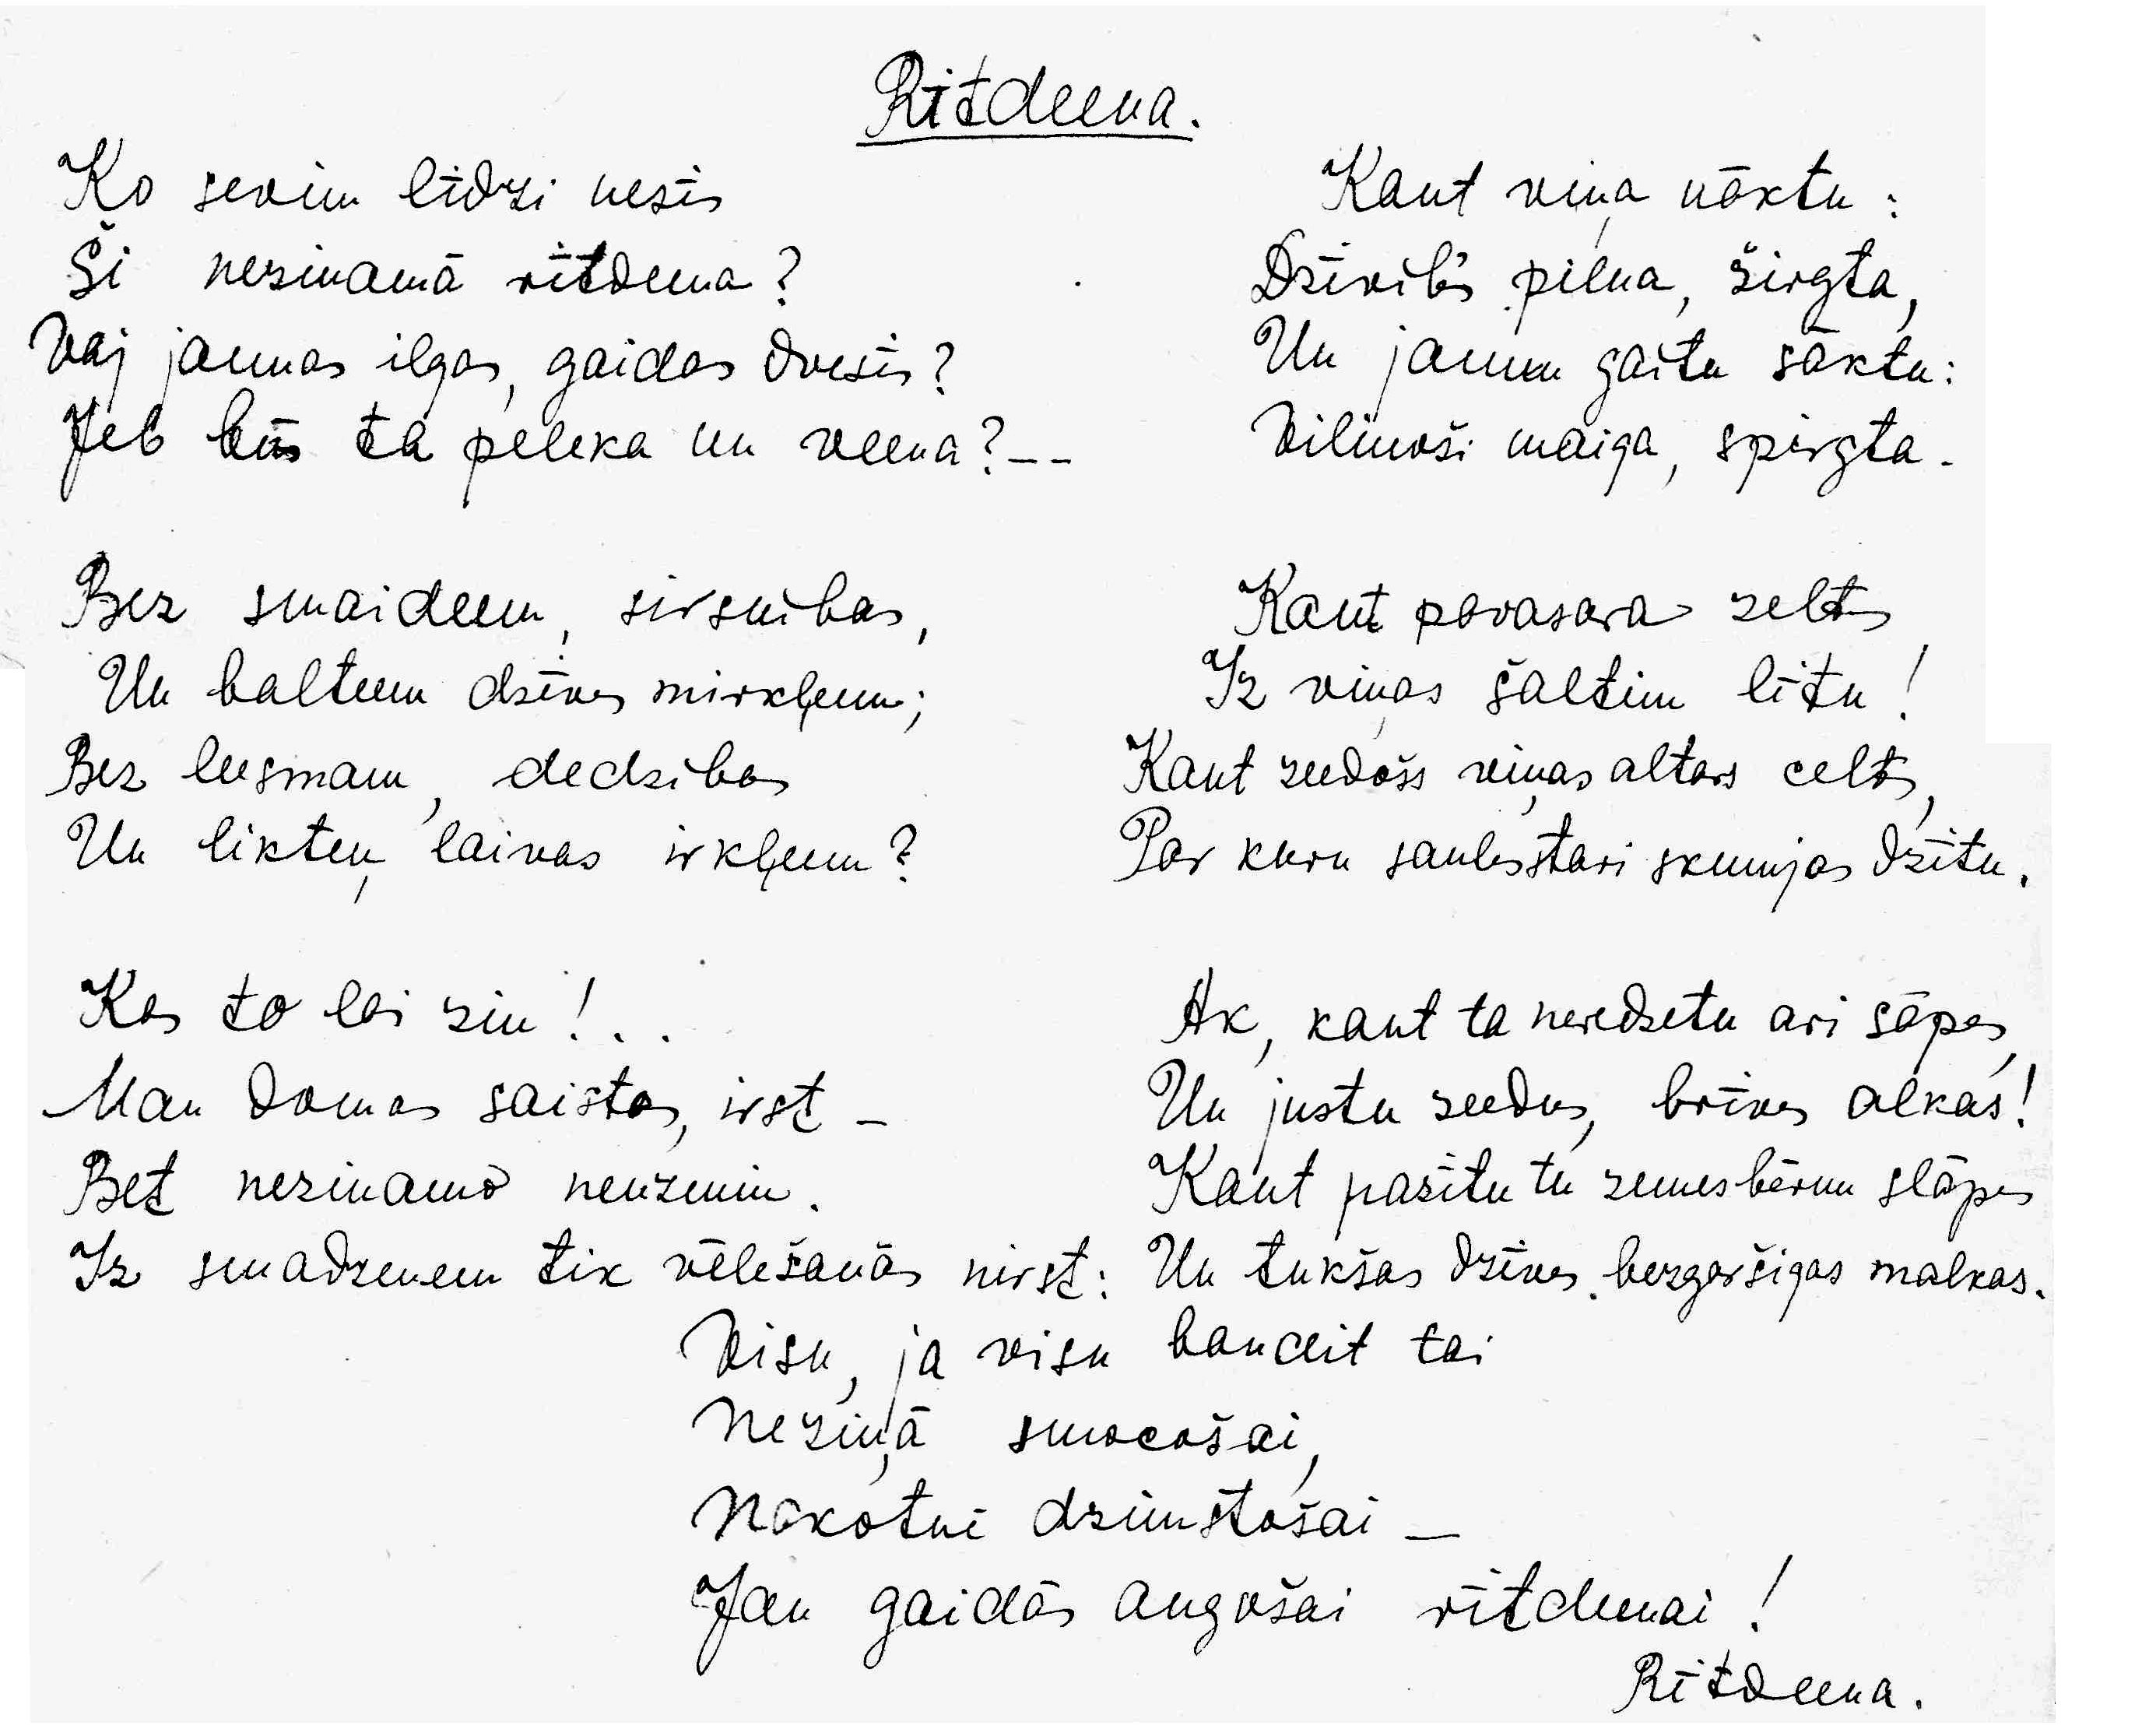 Rītdeena.
Ko sevim līdzi nesīs
Šī nezinamā rītdeena?
Vaj jaunas ilgas, gaidas dvesīs?
Jeb būs ta peleka un veena?--
Bez smaideem, sirsnibas,
Un balteem dzīves mirkļeem;
Bez leesmam, dedzibas
Un likteņ laivas irkļeem?
Kas to lai zin!...
Man domas saistas, irst –
Bet nezinamo neuzmin.
Iz smadzenem tik vēlešanās nirst:
Kaut viņa nāktu:
Dzīvib's pilna, žirgta,
Un jaunu gaitu sāktu:
Vilinoši maiga, spirgta.
Kaut pavasara zelts
Iz viņas šaltim lītu!
Kaut zeedošs viņas altars celts,
Par kuru saulesstari skumjas dzītu.
Ak, kaut ta neredzetu ari sāpes,
Un justu zeedus, brīves alkas!
Kaut pazītu tu zemesbērnu slāpes
Un tukšas dzīves bezgaršigas malkas.
Visu, ja visu baudit tai
Neziņā smocošai,
Nakotnē dzimstošai –
Jau gaidās augošai rītdeenai!
Rītdeena.